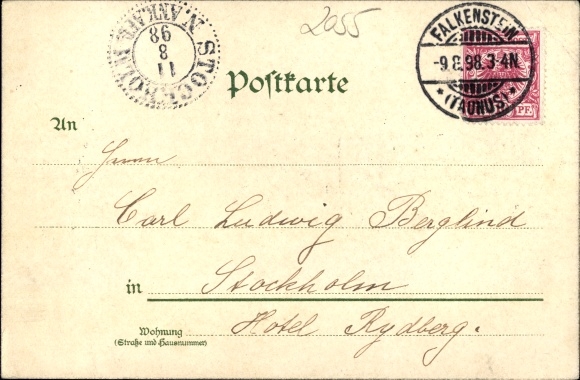 2055
STOCKHOLM N. ANK. AFD.
11
8
98
FALKENSTEIN
-9 8.98.3-4N
*(TAUNUS)*
PF.
Postkarte
An
Herrn
Carl Ludwig Berglind
in Stockholm
Wohnung Hotel Rydberg.
(Straße und Hausnummer)